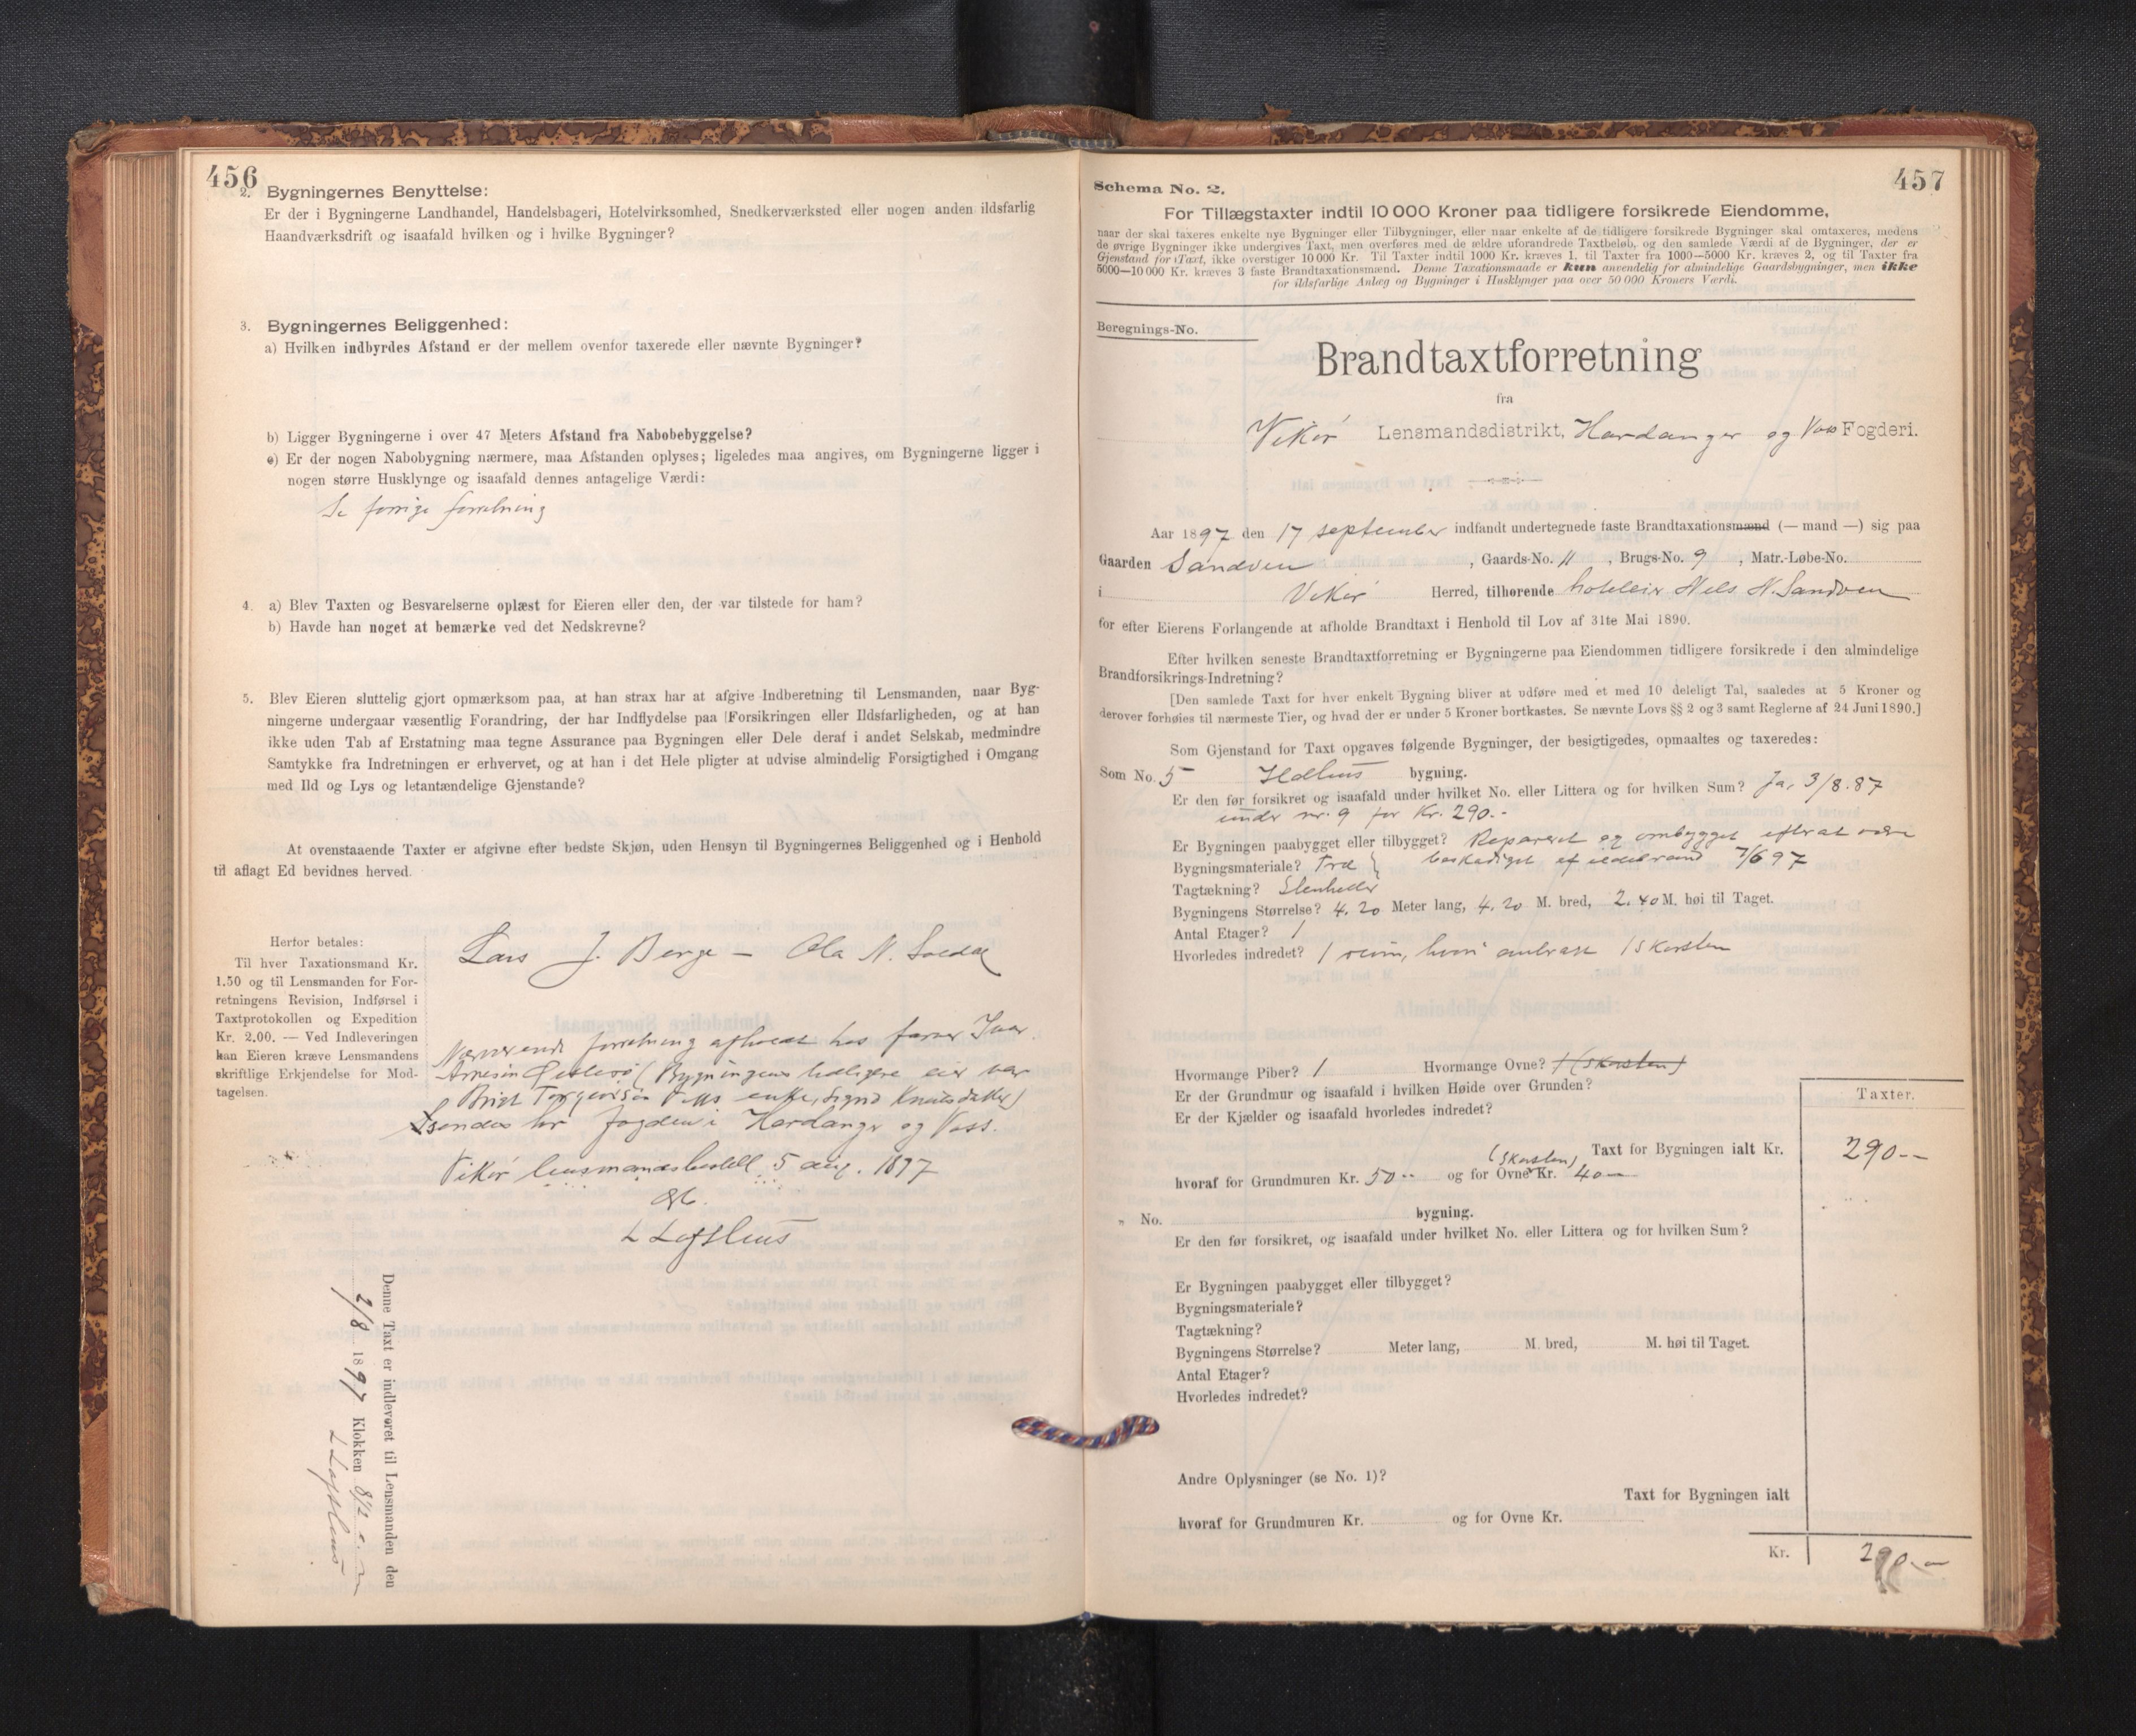 456
2. Bygningernes Benyttelse:
Er der i Bygningerne Landhandel, Handelsbageri, Hotelvirksomhed, Snedkerværksted eller nogen anden ildsfarlig
Haandværksdrift og isaafald hvilken og i hvilke Bygninger?
3. Bygningernes Beliggenhed:
a) Hvilken indbyrdes Afstand er der mellem ovenfor taxerede eller nævnte Bygninger?
b) Ligger Bygningerne i over 47 Meters Afstand fra Nabobebyggelse?
c) Er der nogen Nabobygning nærmere, maa Afstanden oplyses; ligeledes maa angives, om Bygningerne ligger i
nogen større Husklynge og isaafald dennes antagelige Værdi:
Se forrige forretning
4. a) Blev Taxten og Besvarelserne oplæst for Eieren eller den, der var tilstede for ham?
b) Havde han noget at bemærke ved det Nedskrevne?
5. Blev Eieren sluttelig gjort opmærksom paa, at han strax har at afgive Indberetning til Lensmanden, naar Byg-
ningerne undergaar væsentlig Forandring, der har Indflydelse paa Forsikringen eller Ildsfarligheden, og at han
ikke uden Tab af Erstatning maa tegne Assurance paa Bygningen eller Dele deraf i andet Selskab, medmindre
Samtykke fra Indretningen er erhvervet, og at han i det Hele pligter at udvise almindelig Forsigtighed i Omgang
med Ild og Lys og letantændelige Gjenstande?
At ovenstaaende Taxter er afgivne efter bedste Skjøn, uden Hensyn til Bygningernes Beliggenhed og i Henhold
til aflagt Ed bevidnes herved.
Lars J. Berge – Ola N.
Herfor betales:
Til hver Taxationsmand Kr.
1.50 og til Lensmanden for For-
retningens Revision, Indførsel i
Taxtprotokollen og Expedition
Kr. 2.00. — Ved Indleveringen
kan Eieren kræve Lensmandens
skriftlige Erkjendelse for Mod-
tagelsen.
Nærværende forretning afholdt hos farver Ivar
Arnesen (Bygningens tidligere eier var
enke, Sigrid Knutsdatter)
Sendes hr fogden i Hardanger og Voss.
Vikør lensmandsbestill 5 aug. 1897
L Lofthus
Denne Taxt er indleveret til Lensmanden den
2/8 1897 Klokken 8½ e. m
L Lofthus
457
Schema No. 2.
For Tillægstaxter indtil 10 000 Kroner paa tidligere forsikrede Eiendomme,
naar der skal taxeres enkelte nye Bygninger eller Tilbygninger, eller naar enkelte af de tidligere forsikrede Bygninger skal omtaxeres, medens
de øvrige Bygninger ikke undergives Taxt, men overføres med de ældre uforandrede Taxtbeløb, og den samlede Værdi af de Bygninger, der er
Gjenstand for Taxt, ikke overstiger 10 000 Kr. Til Taxter indtil 1000 Kr. kræves 1, til Taxter fra 1000—5000 Kr. kræves 2, og til Taxter fra
5000—10 000 Kr. kræves 3 faste Brandtaxationsmænd. Denne Taxationsmaade er kun anvendelig for almindelige Gaardsbygninger, men ikke
for ildsfarlige Anlæg og Bygninger i Husklynger paa over 50 000 Kroners Værdi.
Beregnings-No.
Brandtaxtforretning
fra
Vikør Lensmandsdistrikt, Hardanger og Voss Fogderi.
Aar 1897 den 17 september indfandt undertegnede faste Brandtaxationsmænd (— mand —) sig paa
Gaarden Sandven, Gaards-No. 11, Brugs-No. 9, Matr.-Løbe-No.
i Vikør Herred, tilhørende hoteleier Nils N. Sandven
for efter Eierens Forlangende at afholde Brandtaxt i Henhold til Lov af 31te Mai 1890.
Efter hvilken seneste Brandtaxtforretning er Bygningerne paa Eiendommen tidligere forsikrede i den almindelige
Brandforsikrings-Indretning?
[Den samlede Taxt for hver enkelt Bygning bliver at udføre med et med 10 deleligt Tal, saaledes at 5 Kroner og
derover forhøies til nærmeste Tier, og hvad der er under 5 Kroner bortkastes. Se nævnte Lovs §§ 2 og 3 samt Reglerne af 24 Juni 1890.]
Som Gjenstand for Taxt opgaves følgende Bygninger, der besigtigedes, opmaaltes og taxeredes:
Som No. 5 Ildhus bygning.
Er den før forsikret og isaafald under hvilket No. eller Littera og for hvilken Sum? Ja, 3/8. 87
under nr. 9 for Kr. 290.-
Er Bygningen paabygget eller tilbygget? Reparert og ombygget efter at være
Bygningsmateriale? Træ } beskadiget af ildebrand 7/6 97
Tagtækning? Stenheller
Bygningens Størrelse? 4.20 Meter lang, 4.20 M. bred, 2.40 M. høi til Taget.
Antal Etager? 1
Hvorledes indredet? 1 rum, hvori anbragt 1 skorsten
Hvormange Piber? 1 Hvormange Ovne? 1 (skorsten)
Er der Grundmur og isaafald i hvilken Høide over Grunden?
Er der Kjælder og isaafald hvorledes indredet?
Taxter.
Taxt for Bygningen ialt Kr. 290--
(skorsten)
hvoraf for Grundmuren Kr. 50 -- og for Ovne Kr. 40 —
„ No. bygning.
Er den før forsikret, og isaafald under hvilket No. eller Littera og for hvilken Sum?
Er Bygningen paabygget eller tilbygget?
Bygningsmateriale?
Tagtækning?
Bygningens Størrelse? Meter lang, M. bred, M. høi til Taget.
Antal Etager?
Hvorledes indredet?
Andre Oplysninger (se No. 1)?
Taxt for Bygningen ialt
hvoraf for Grundmuren Kr. og for Ovne Kr.
Kr. 290.—